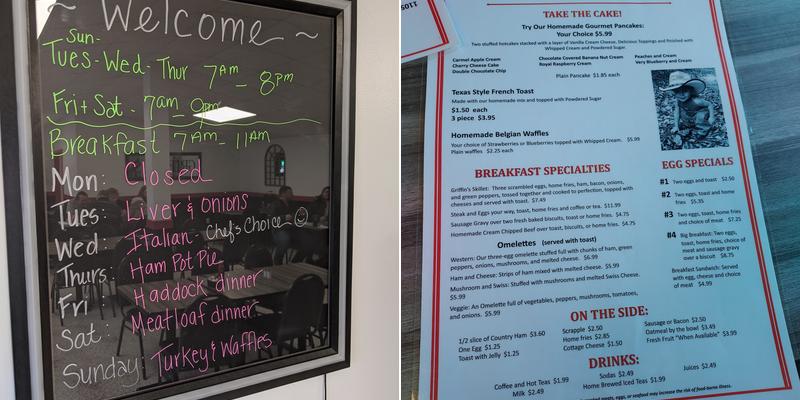 ~ Welcome ~
Sun-
Tues-Wed-Thur 7am - 8pm
Fri + Sat - 7am - 9pm
Breakfast 7AM - 11AM
Mon: Closed
Tues: Liver & Onions
Wed: Italian - Chef's Choice ☺
Thurs: Ham Pot Pie
Fri: Haddock dinner
Sat: Meatloaf dinner
Sunday: Turkey & Waffles
1105
TAKE THE CAKE!
Try Our Homemade Gourmet Pancakes:
Your Choice $5.99
Two stuffed hotcakes stacked with a layer of Vanilla Cream Cheese, Delicious Toppings and finished with
Whipped Cream and Powdered Sugar.
Carmel Apple Cream
Cherry Cheese Cake
Double Chocolate Chip
Chocolate Covered Banana Nut Cream
Royal Raspberry Cream
Peaches and Cream
Very Blueberry and Cream
Plain Pancake $1.85 each
Texas Style French Toast
Made with our homemade mix and topped with Powdered Sugar
$1.50 each
3 piece $3.95
Homemade Belgian Waffles
Your choice of Strawberries or Blueberries topped with Whipped Cream. $5.99
Plain waffles $2.25 each
BREAKFAST SPECIALTIES
Griffin's Skillet: Three scrambled eggs, home fries, ham, bacon, onions,
and green peppers, tossed together and cooked to perfection, topped with
cheeses and served with toast. $7.49
Steak and Eggs your way, toast, home fries and coffee or tea. $11.99
Sausage Gravy over two fresh baked biscuits, toast or home fries. $4.75
Homemade Cream Chipped Beef over toast, biscuits, or home fries. $4.75
Omelettes (served with toast)
Western: Our three-egg omelette stuffed full with chunks of ham, green
peppers, onions, mushrooms, and melted cheese. $6.99
Ham and Cheese: Strips of ham mixed with melted cheese. $5.99
Mushroom and Swiss: Stuffed with mushrooms and melted Swiss Cheese.
$5.99
Veggie: An Omelette full of vegetables, peppers, mushrooms, tomatoes,
and onions. $5.99
EGG SPECIALS
#1 Two eggs and toast $2.50
#2 Two eggs, toast and home
fries $5.35
#3 Two eggs, toast, home fries
and choice of meat $7.25
#4 Big Breakfast: Two eggs,
toast, home fries, choice of
meat and sausage gravy
over a biscuit $8.75
Breakfast Sandwich: Served
with egg, cheese and choice
of meat $4.99
ON THE SIDE:
1/2 slice of Country Ham $3.60
One Egg $1.25
Toast with Jelly $1.25
Scrapple $2.50
Home fries $2.85
Cottage Cheese $1.50
Sausage or Bacon $2.50
Oatmeal by the bowl $3.49
Fresh Fruit "When Available" $3.99
DRINKS:
Coffee and Hot Teas $1.99
Milk $2.49
Sodas $2.49
Home Brewed Iced Teas $1.99
Juices $2.49
meats, eggs, or seafood may increase the risk of food-borne illness.